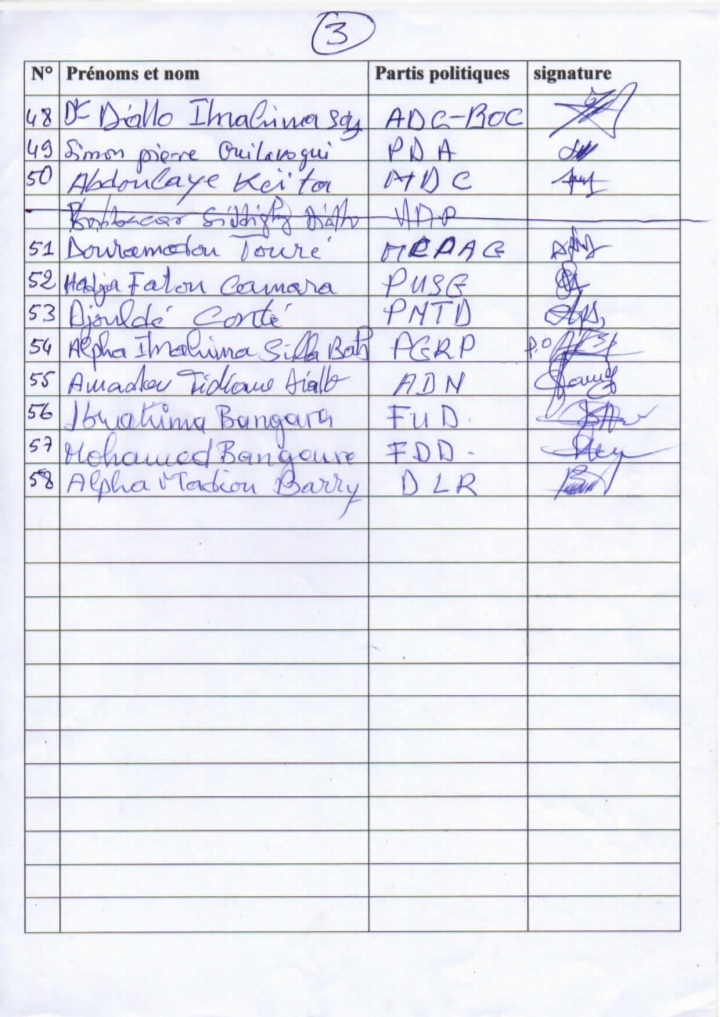 3
N° Prénoms et nom Partis politiques signature
48 Dr Diallo Ibrahima Sory ADC-BOC
49 Simon pierre Guilavogui PDA
50 Abdoulaye Keïta MDC
51 Douramodou Touré
52 Hadja Fatou Camara PUSG
53 Djouldé Conté PMTD
54 Alpha Ibrahima Silla Bah PGRP P.O
55 Amadou Tidiane Diallo ADN
56 Ibrahima Bangara FUD.
57 Mohamed Bangoura FDD.
58 Alpha Madiou Barry DLR